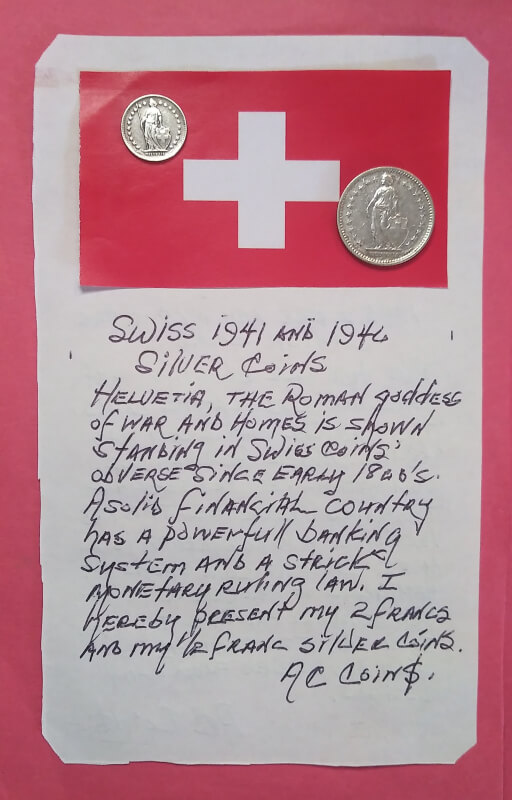 Swiss 1941 AND 1946
Silver Coins
Helvetia, the Roman goddess
of war and Homes is shown
standing in Swiss Coins'
obverse since early 1800's.
A solid financial country
has a powerfull banking
system and a strick
monetary ruling law. I
hereby present my 2 francs
and my 1/2 franc silver coins.
AC Coin$.